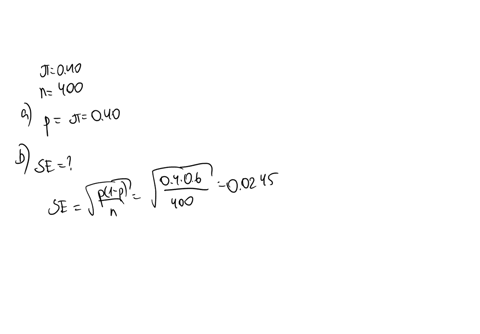 π=0.40
n=400
a) p= π=0.40
b) SE=?
SE = √(p(1-p)/n) = √(0.4·0.6/400) = 0.0245